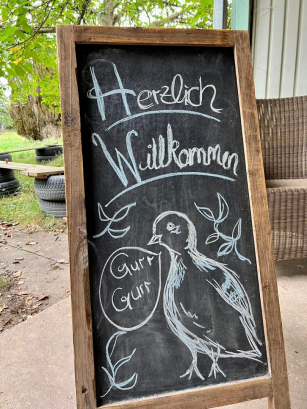 Herzlich
Willkommen
Gurr
Gurr